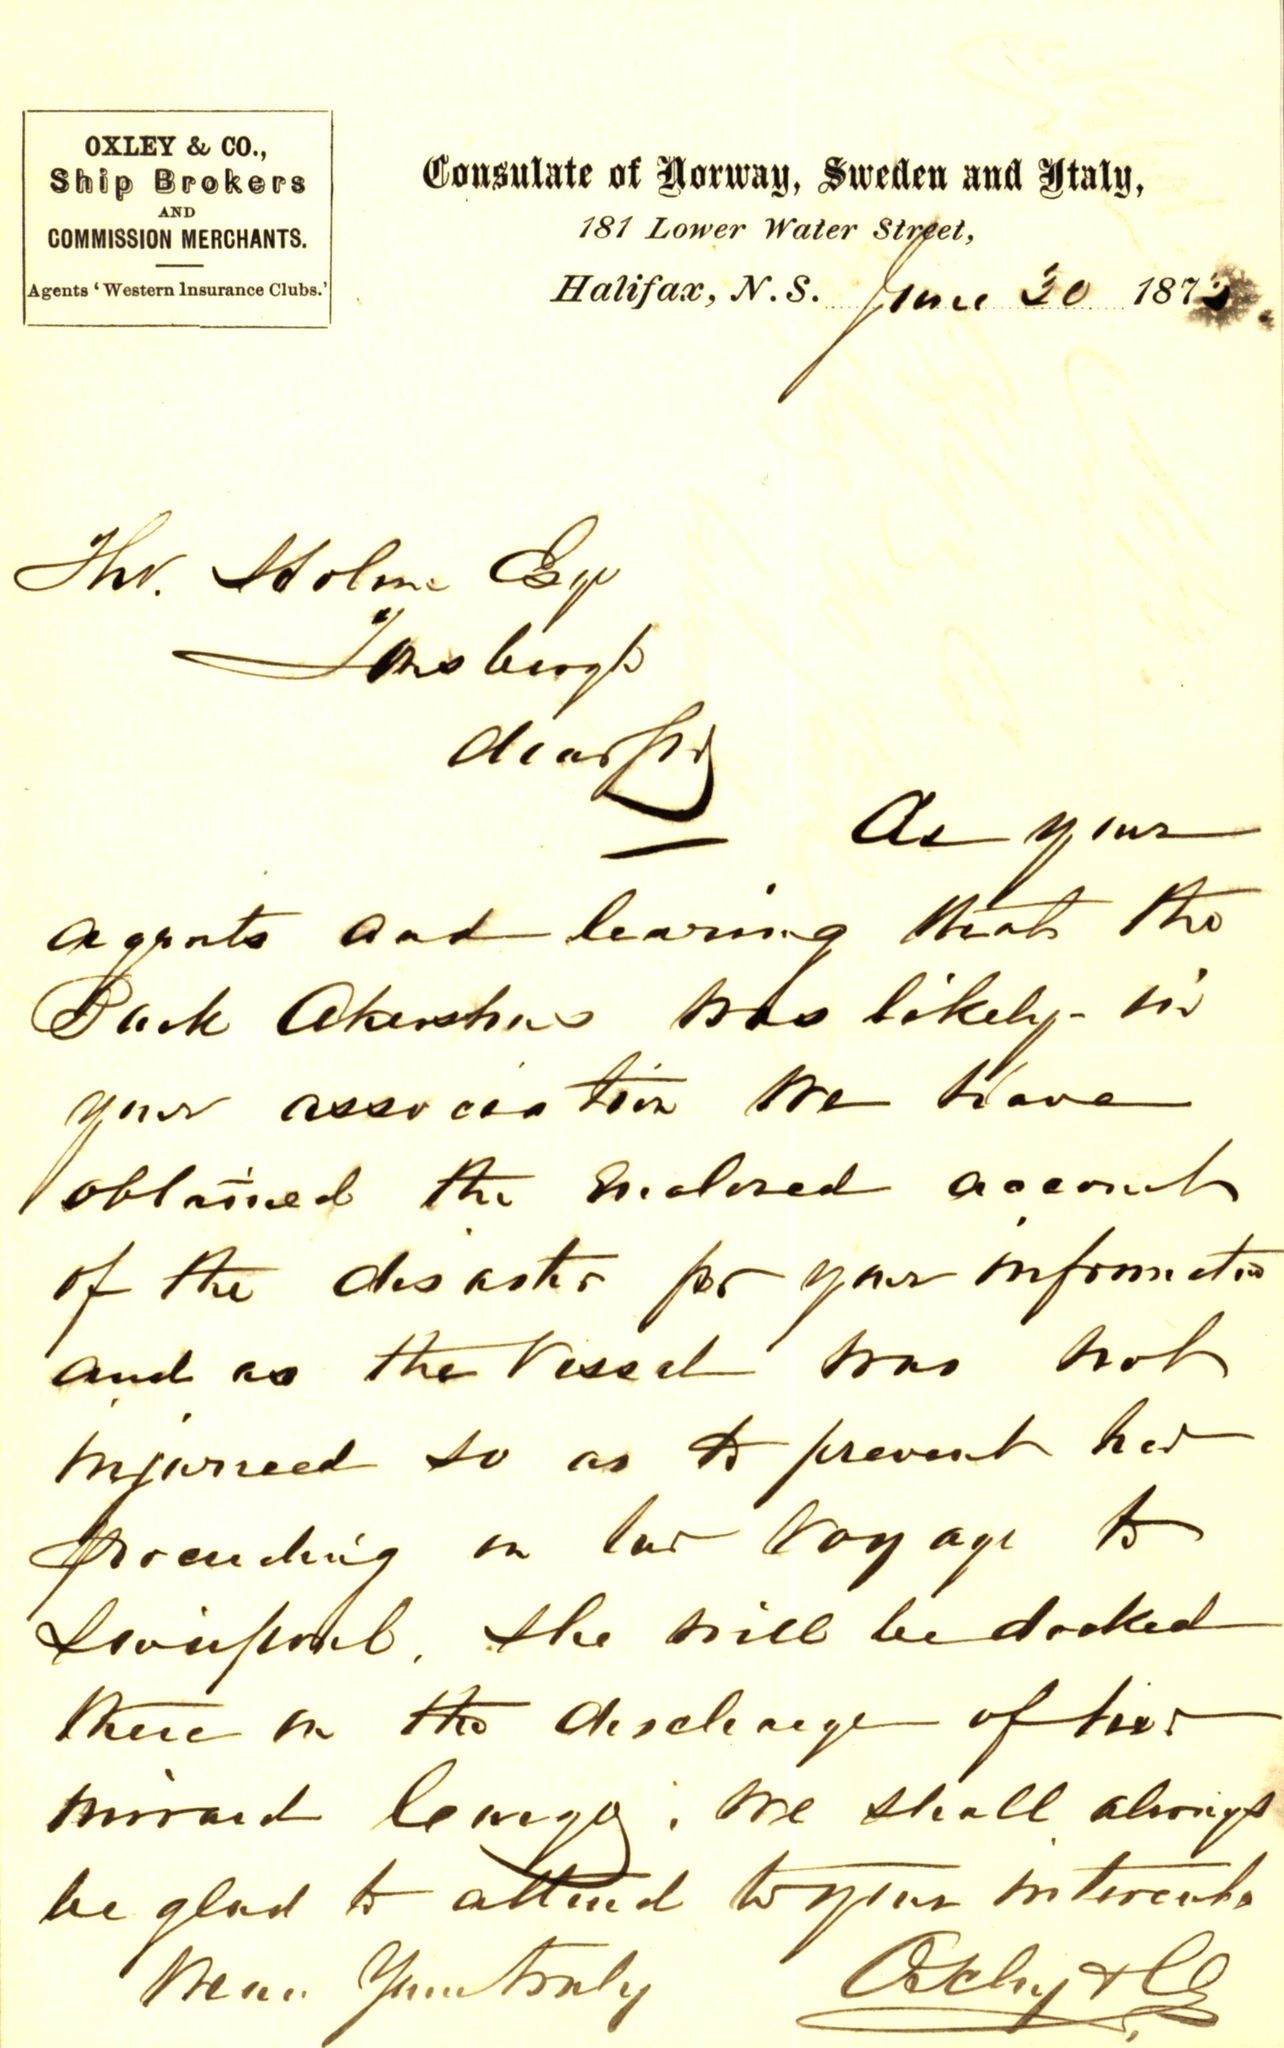 OXLEY & CO.,
Ship Brokers
AND
COMMISSION MERCHANTS.
Agents 'Western Insurance Clubs.'
Consulate of Norway, Sweden and Italy,
181 Lower Water Street,
Halifax, N.S. June 20 187
Thv. Holme Esqr
Tonsbergh
dear Sir
As your
agents and learning that the
Bark Akershus was likely in
your association We have
obtained the Enclosed account
of the disaster for your information
and as the Vessel was not
injureed so as to prevent her
proceeding on her Voyage to
Liverpool. She will be docked
there on the discharge of her
inward Cargo. We shall always
be glad to attend to your interests
We are Yours truly Oxley & Co